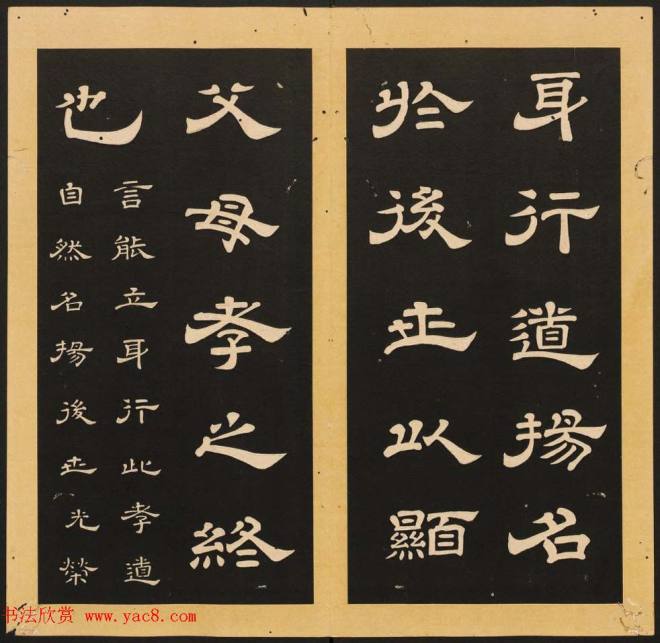 身行道揚名
於後世以顯
父母孝之終
也
言能立身行此孝道
自然名揚後世光榮
书法欣赏 www.yac8.com